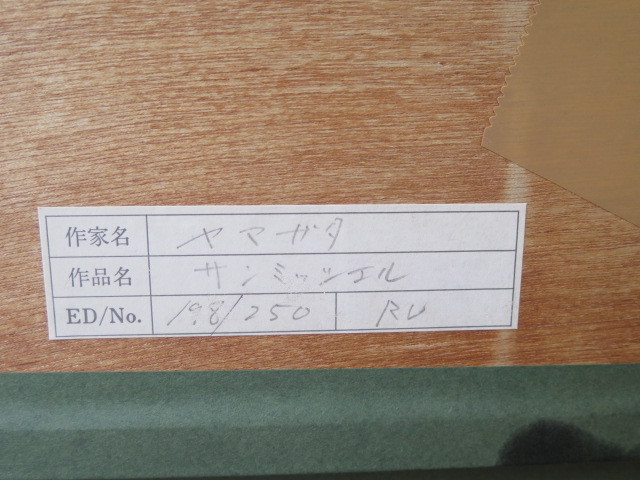 作家名 ヤマガタ
作品名 サンミッシエル
ED/No. 198/250 RU